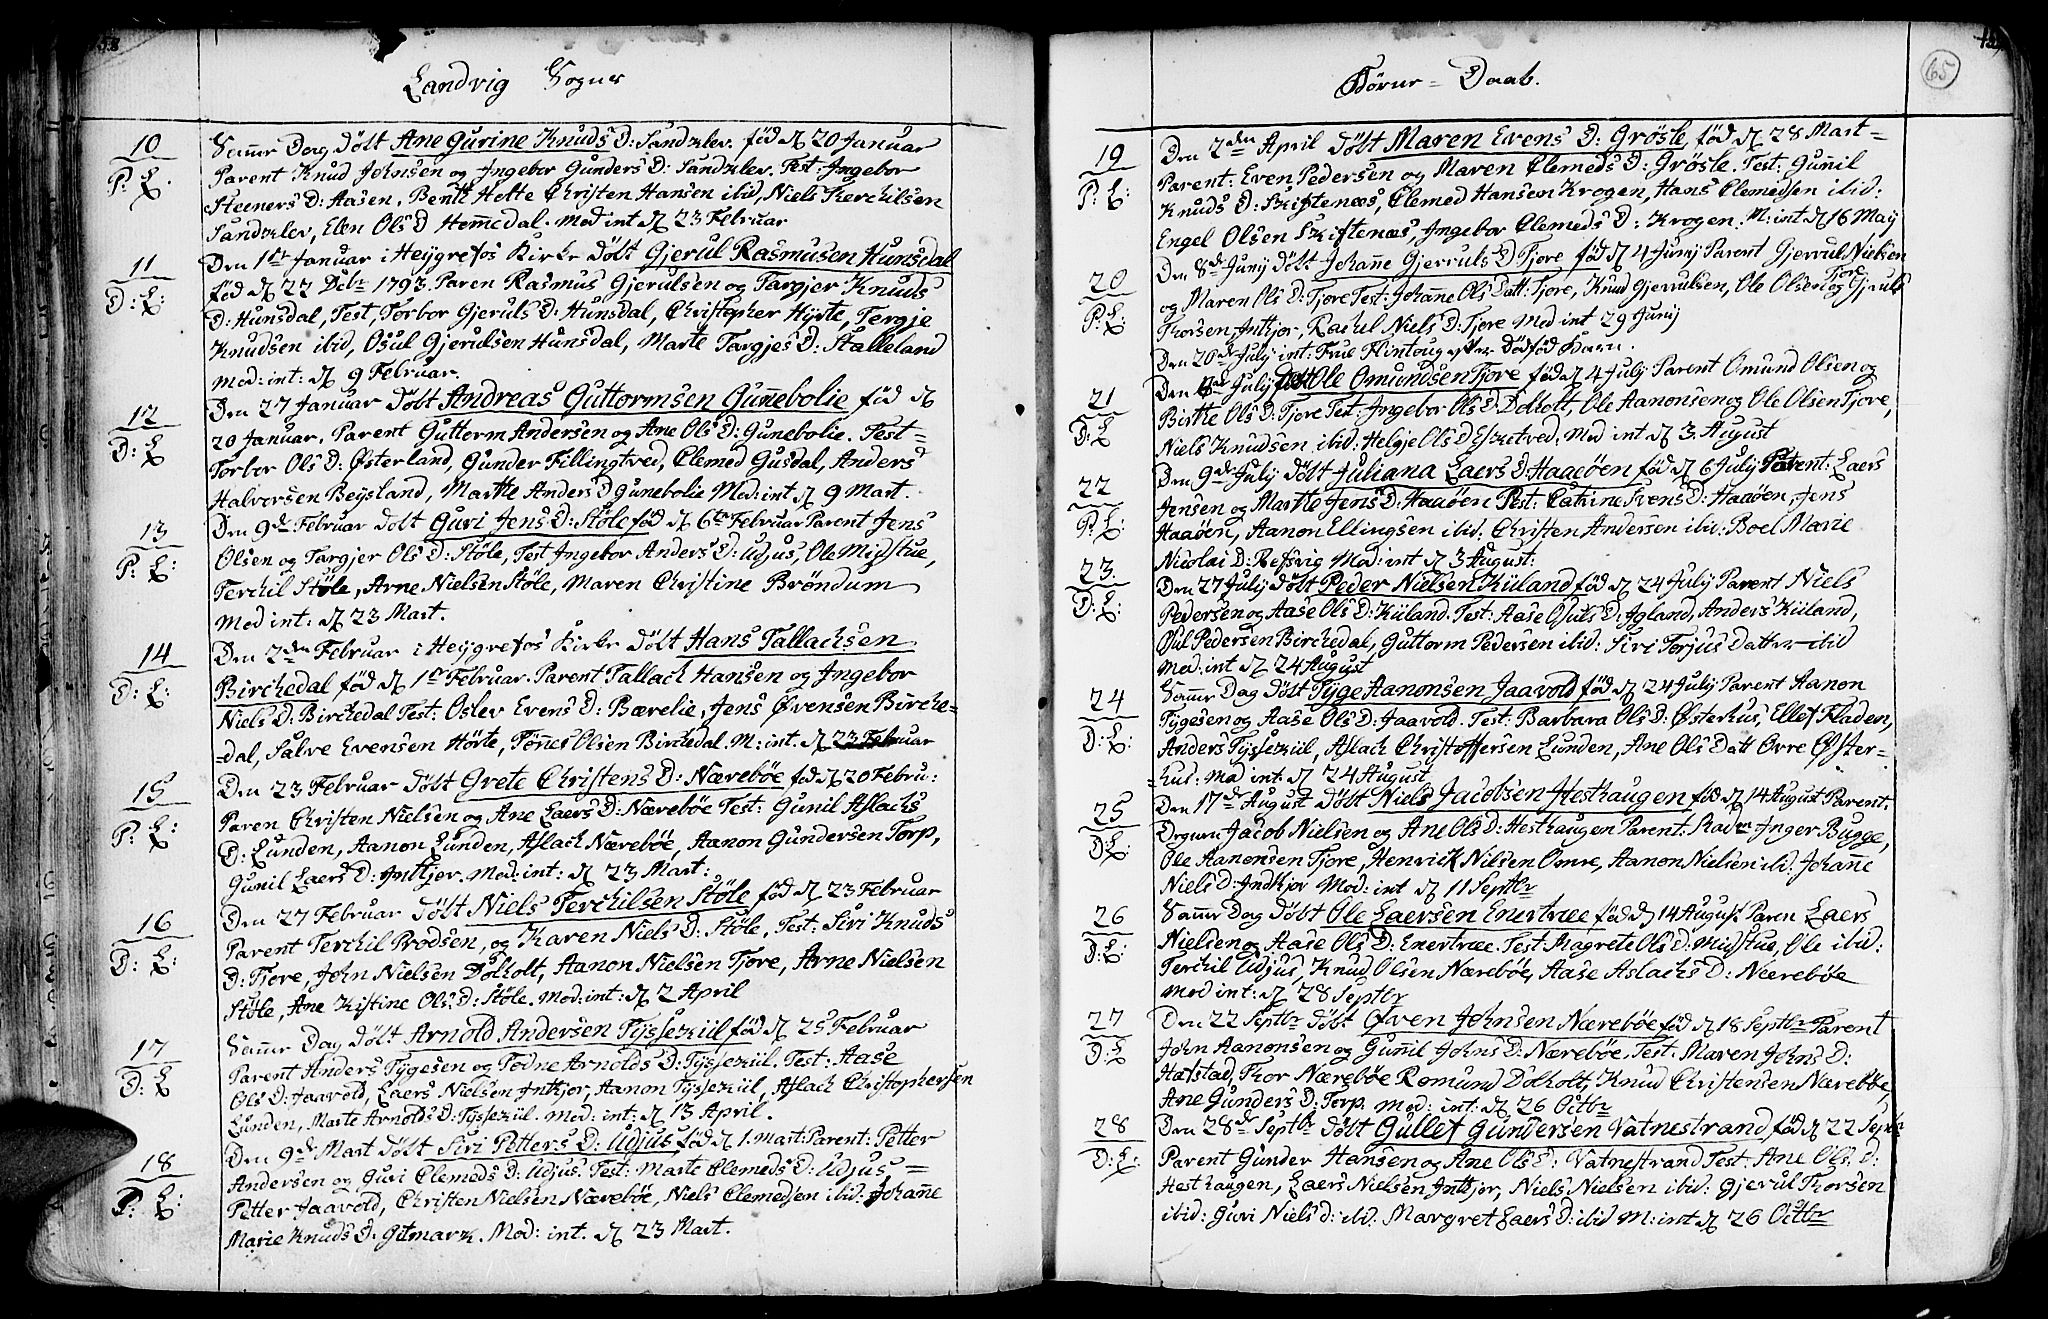 Landvig Sogns
10
P: L:
Samr Dag döbt Ane Gurine Knuds D: Sandklev. föd d 20 Januar
Parent Knud Johnsen og Ingebor Gunders D: Sandklev. Test: Ingebor
Steeners D: Aasen, Bent Hette Christen Hansen ibid, Niels Terchilsen
Sandklev, Elen Ols D Hemedal. Mod int d 23 Februar
11
D: L:
Den 1ste Januar i Heygrefos Kirke döbt Gjerul Rasmusen Hunsdal
föd d 22 Dcbr 1793. Paren Rasmus Gjerulsen og Targjer Knuds
D: Hunsdal, Test, Torbor Gjeruls D: Hunsdal, Christopher Hyrte, Tergje
Knudsen ibid, Osul Gjerulsen Hunsdal, Marte Targjes D: Stalleland
Mod: int: d 9 Februar.
12
D: L
Den 27 Januar döbt Andreas Guttormsen Gunnebolie föd d
20 Januar. Parent Guttorm Andersen og Ane Ols D: Gunebolie. Test=
Torbor Ols D: Østerland, Gunder Fillingtved, Clemed Gusdal, Anders
Halversen Beysland, Marthe Anders D Gunebolie Mod: int d 9 Mart.
13
P: L:
Den 9de Februar döbt Guri Jens D: Støle föd d 6te Februar Parent Jens
Olsen og Targjer Ols D: Støle, Test Ingebor Anders D: Udjus, Ole Midstue,
Terchil Støle, Arne Nielsen Støle, Maren Christine Bröndum
Mod int: d 23 Mart.
14
D: L:
Den 2den Februar i Heygrefos Kirke döbt Hans Tallachsen
Birchedal föd d 1ste Februar. Parent Tallach Hansen og Ingebor
Niels D: Birchedal Test: Oslev Evens D: Bærelie, Jens Øvensen Birche=
=dal, Salve Evensen Hörte, Tönnes Olsen Birchedal. M: int. d 23 Februar
15
P: L:
Den 23 Februar döbt Grete Christens D: Nærebøe föd d 20 Febru:
Paren Christen Nielsen og Ane Laers D: Nærebøe Test: Gunil Aslachs
D: Lunden, Aanon Lunden, Aslach Nærebøe, Aanon Gundersen Torp,
Gunil Laers D: Intkjer. Mod: int: d 23 Mart:
16
D: L:
Den 27 Februar döbt Niels Terchilsen Støle föd d 23 Februar
Parent Terchil Brodsen, og Karen Niels D: Støle, Test: Siri Knuds
D: Tjore, John Nielsen Dolholt, Aanon Nielsen Tjore, Arne Nielsen
Støle, Ane Kistine Ols: D: Støle. Mod: int: d 2 April
17
D: L
Samr Dag döbt Arnold Andersen Tyssekiil föd d 25 Februar
Parent Anders Tygesen og Todne Arnolds D: Tyssekiil. Test: Aase
Ols D: Jaavold, Laers Nielsen Intkjor, Aanon Tyssekiil, Aslach Christophersen
Lunden, Marte Arnolds D: Tyssekiil. Mod: int: d 13 April.
18
P: L:
Den 9de Mart döbt Siri Petters D: Udjus, föd d 1. Mart: Parent: Petter
Andersen og Guri Clemeds D: Udjus. Test: Marte Clemeds D: Udjus=
Petter Jaavold, Christen Nielsen Nærebøe, Niels Clemedsen ibid: Johanne
Marie Knuds D: Gitmark. Mod: int. d 23 Mart.
Börne = Daab.
65
19
P: L:
Den 2den April döbt Maren Evens D: Grösle, föd d 28 Mart=
Parent: Even Pedersen og Maren Clemeds D: Grösle. Test: Gunnil
Knuds D: Skiftenæs, Clemed Hansen Krogen, Hans Clemedsen ibid:
Engel Olsen Skiftenæs, Ingebor Clemeds D: Krogen. M: int d 16 May
20
P: L:
Den 8de Junij döbt Johanne Gjeruls D Tjore föd d 4 Junij Parent Gjerrul Nielsen
og Maren Ols D: Tjore Test: Johanne Ols Datt: Tjore, Knud Gjerrulsen, Ole Olsen Tjore og Gjerul
Thorsen Intkjor, Rachel Niels D: Tjore Mod int 29 Junij
Den 20de July int: Frue Flintoug efter Dödföd Barn.
21
D: L
Den July döbt Ole Omundsen Tjore föd d 4 July Parent Omund Olsen og
Birthe Ols D: Tjore Test: Ingebor Ols D: Dolholt, Ole Aanonsen og Ole Olsen Tjore,
Niels Knudsen ibid: Helgje Ols D Esketved. Mod int d 3. August
22
P: L:
Den 9de July döbt Juliana Laers D: Haaøen föd d 6 July Parent: Laers
Jensen og Marthe Jens D: Haaøen Test: Catrine Svens D: Haaøen, Jens
Haaøen, Aanon Ellingsen ibid: Christen Andersen ibid: Boel Marie
Nicolai D: Refsvig Mod: int d 3 August:
23
D: L:
Den 27 July döbt Peder Nielsen Kiiland föd d 24 July Parent Niels
Pedersen og Aase Ols D: Kiiland. Test: Aase Osuls D: Igland, Anders Kiiland,
Osul Pedersen Birchedal, Guttorm Pedersen ibid: Siri Torjus Datter ibid
Mod: int d 24 August
24
D: L:
Samr Dag döbt Tyge Aanonsen Jaavold föd d 24 July Parent Aanon
Tygesen og Aase Ols D: Jaavold. Test: Barbara Ols D: Østerhus, Ellef Fladen,
Anders Tyssekiil, Aslach Christoffersen Lunden, Ane Ols Datt Ovre Øster=
=hus: Mod int: d 24 August
25
D: L:
Den 17de August döbt Niels Jacobsen Hesthaugen föd d 14 August Parent:
Drgun Jacob Nielsen og Ane Ols D: Hesthaugen Parent: Madm Inger Bugge,
Ole Aanonsen Tjore, Henrick Nilsen Omre, Aanon Nielsen ibid: Johanne
Niels D: Indkjor Mod: int d 11 Septbr
26
D: L:
Samr Dag döbt Ole Laersen Enertræe föd d 14 August Paren Laers
Nielsen og Aase Ols D: Enertræe. Test: Magrete Ols D: Midstue, Ole ibid:
Terchil Udjus, Knud Olsen Nærebøe, Aase Aslachs D: Nærebøe
Mod int: d 28 Septbr
27
D: L
Den 22 Septbr döbt Øven Johnsen Nærebøe föd d 18 Septbr Parent
John Aanonsen og Gunnil Johns D: Nærebøe. Test. Maren Johns D:
Hafstad, Thor Nærebøe Romund Dolholt, Knud Christensen Nærebøe,
Ane Gunders D: Torp. Mod: int: d 26 Octbr
28
D: L:
Den 28de Septbr döbt Gullef Gundersen Vatnestrand föd d 22 Septbr
Parent Gunder Hansen og Ane Ols D: Vatnestrand Test: Ane Ols D:
Hesthaugen, Laers Nielsen Intkjor, Niels Nielsen ibid: Gjerul Thorsen
ibid: Guri Niels D: ibid. Margret Laers D: ibid M: int d 26 Octbr